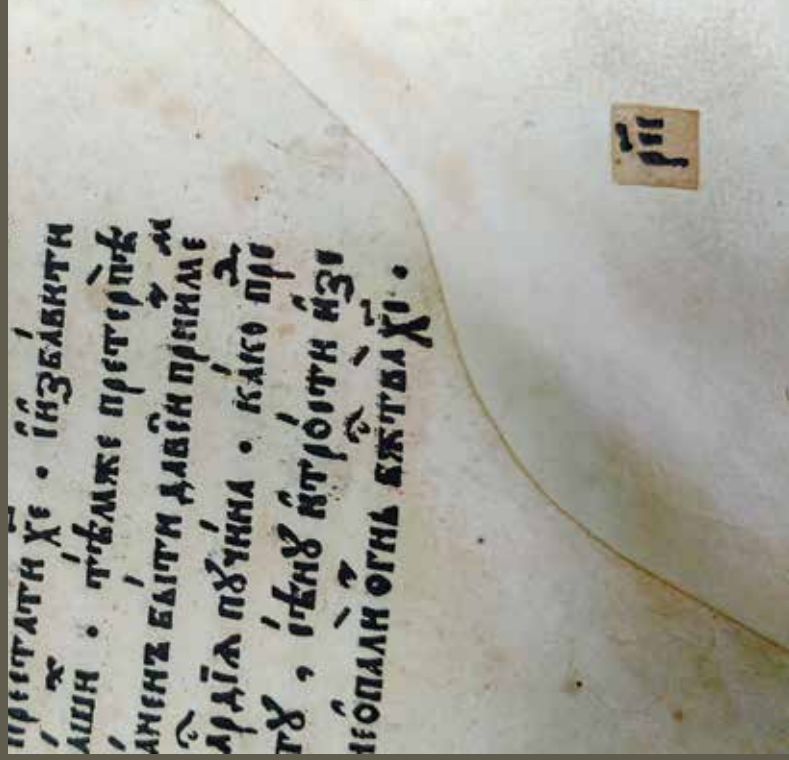 престати хе҃ · і҆и҆збавити
аши · тѣ́мже претерпѣ̀
аненъ бы́ти давеи прїиме
ардїѧ пꙋчи́на · ка́ко преⷣ
тꙋ , сѣ́нꙋ и҆тро́сти и҆зс
неопали огнь бжⷭ҇тва